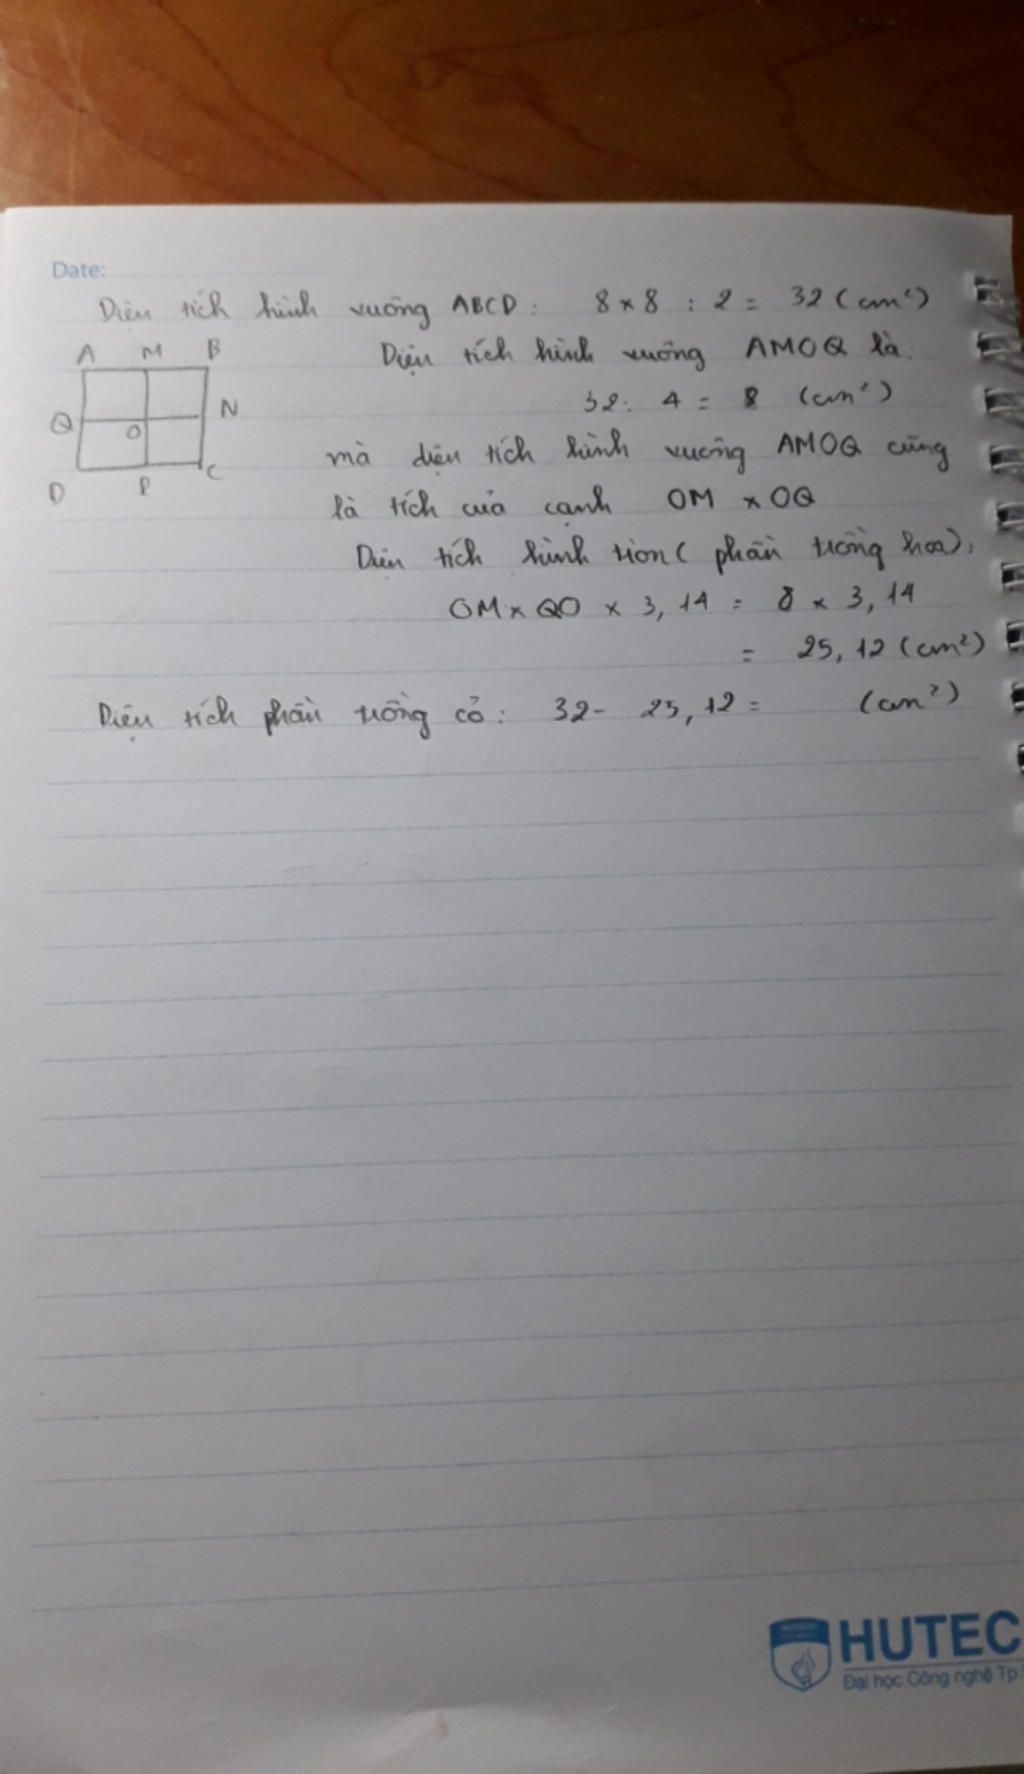 Date:
Diện tích hình vuông ABCD: 8 x 8 : 2 = 32 (cm²)
A M B
Diện tích hình vuông AMOQ là:
Q O N
32 : 4 = 8 (cm²)
D P C
mà diện tích hình vuông AMOQ cũng
là tích của cạnh OM x OQ
Diện tích hình tròn ( phần trồng hoa):
OM x QO x 3,14 = 8 x 3,14
= 25,12 (cm²)
Diện tích phần trồng cỏ: 32 - 25,12 = (cm²)
HUTEC
Đại học Công nghệ Tp